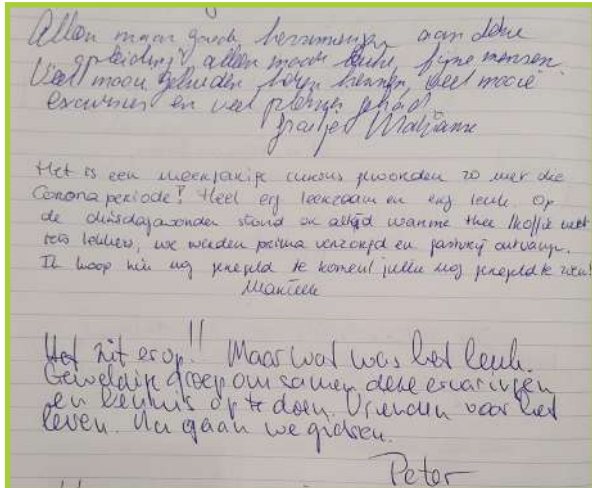 Alleen maar goede herinneringen aan deze
opleiding, alleen maar leuke, fijne mensen.
Veel mooie gebieden leren kennen, veel mooie
excursies en veel plezier gehad
groetjes Marianne
Het is een meerjarige cursus geworden zo met die
Corona periode! Heel erg leerzaam en erg leuk. Op
de dinsdagavonden stond er altijd warme thee/koffie met
iets lekkers, we werden prima verzorgd en gastvrij ontvangen.
Ik hoop hier nog geregeld te komen! jullie nog geregeld te zien!
Het zit erop!! Maar wat was het leuk.
Geweldige groep om samen deze ervaringen
en kennis op te doen. Vrienden voor het
leven. Nu gaan we gidsen.
Peter